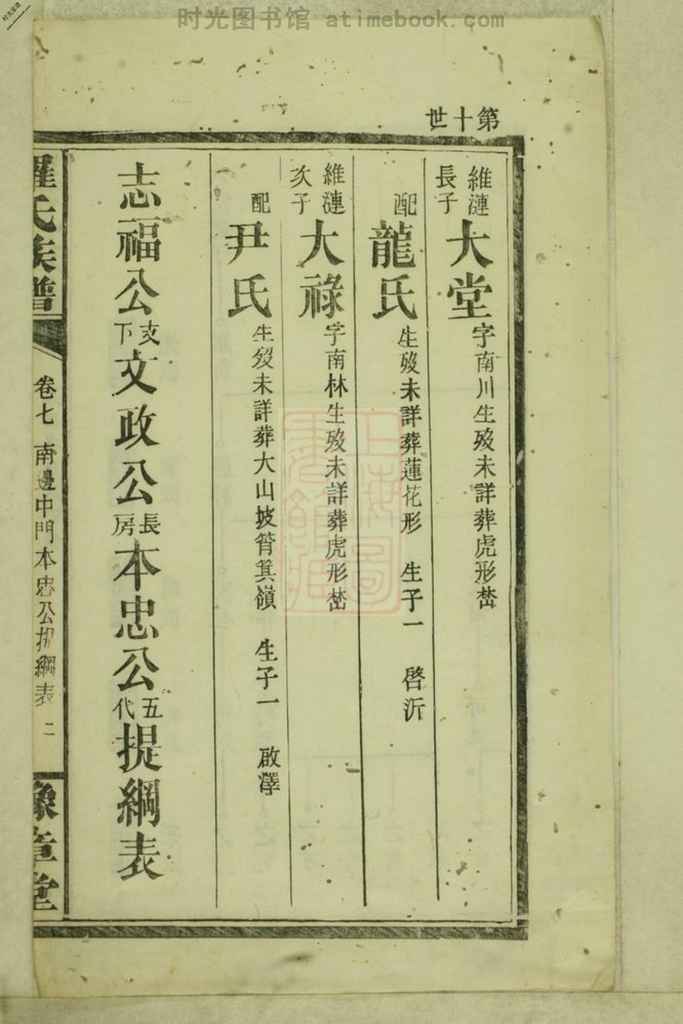 时光图书馆 atimebook.com
第十世
維漣長子 大堂 字南川生歿未詳葬虎形塋
配 龍氏 生歿未詳葬蓮花形 生子一 啓沂
維漣次子 大祿 字南林生歿未詳葬虎形塋
配 尹氏 生歿未詳葬大山披筲箕嶺 生子一 啟澤
志福公支下文政公長房本忠公五代提綱表
羅氏族譜 卷七 南邊中門本忠公提綱表 二 豫章堂